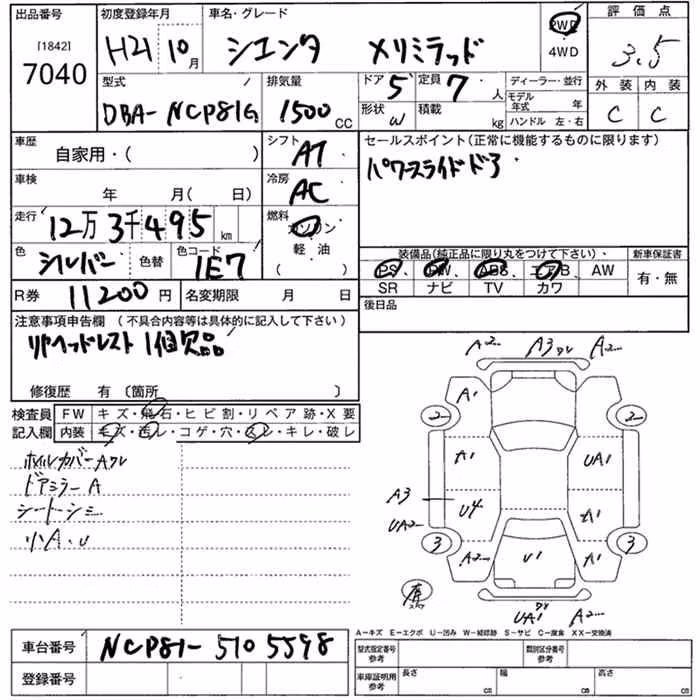 出品番号 初度登録年月 車名・グレード 評価点
[1842]
7040
H21 10月 シエンタ メリミテッド 2WD 4WD 3.5
型式 排気量 ドア 5 定員 7人 ディーラー・並行 外装 内装
DBA-NCP81G 1500cc 形状 W 積載 kg モデル年式 年 C C
ハンドル 左・右
車歴 シフト AT セールスポイント(正常に機能するものに限ります)
自家用・( ) パワースライドドア
車検 年 月( 日) 冷房 AC
走行 12万3千495km 燃料 ガソリン
色 シルバー 色替 色コード 1E7 軽・油
( )
装備品(純正品に限り丸をつけて下さい)、 新車保証書
PS、PW、ABS、エアB、AW 有・無
SR ナビ TV カワ
R券 11200円 名変期限 月 日 後日品
注意事項申告欄 (不具合内容等は具体的に記入して下さい)
リヤヘッドレスト1個欠品
修復歴 有 〔箇所 〕
検査員 FW キズ・飛石・ヒビ割・リペア跡・X要
記入欄 内装 キズ・汚レ・コゲ・穴・スレ・キレ・破レ
ホイルカバーAワレ
ドアミラーA
シートシミ
小A.U
A2 A3ワレ A2
A1
2 2
A1 UA1
A3
UA2 U4 A1
3 3
A2 U1 A1
UA1 A2
A-キズ E-エクボ U-凹み W-補修跡 S-サビ C-腐食 XX-交換済
車台番号 NCP81-5105598
型式指定番号 参考 類別区分番号 参考
登録番号
車庫証明用 参考 長さ cm 幅 cm 高さ cm